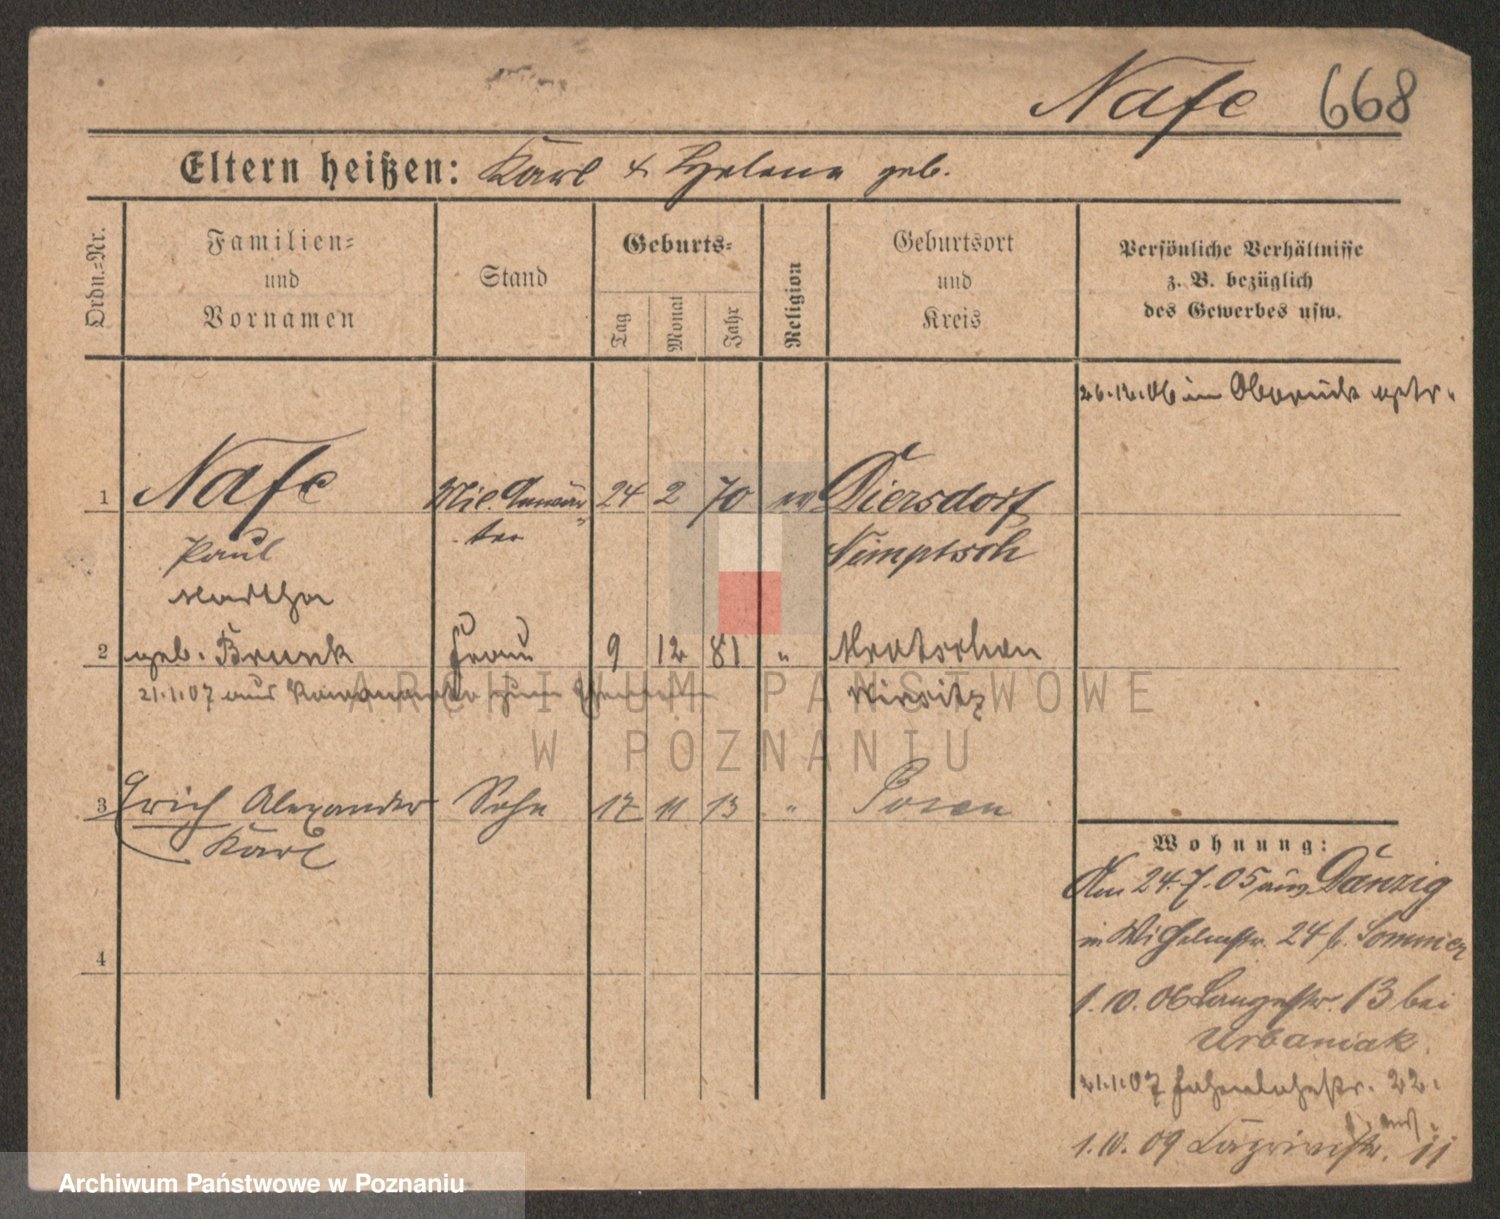 Nafe 668
Eltern heißen: Karl & Helene geb.
Ordn.=Nr.
Familien=
und
Vornamen
Stand
Geburts=
Tag
Monat
Jahr
Religion
Geburtsort
und
Kreis
Persönliche Verhältnisse
z. B. bezüglich
des Gewerbes usw.
26.12.06 in
1 Nafe Mil. Anwär= 24 2 70 ev Diersdorf
Paul ter Nimptsch
Martha
2 geb. Brunk Frau 9 12 81 " Mrotschen
21.1.07 aus zum Wirsitz
3 Erich Alexander Sohn 17 11 13 " Posen
Karl
4
Wohnung:
Am 24.7.05 aus Danzig
in Wilhelmstr. 24 b. Sommer
1.10.06 Langestr. 13 bei
Urbaniak.
21.1.07 22.
1.10.09 11
ARCHIWUM PAŃSTWOWE
W POZNANIU
Archiwum Państwowe w Poznaniu